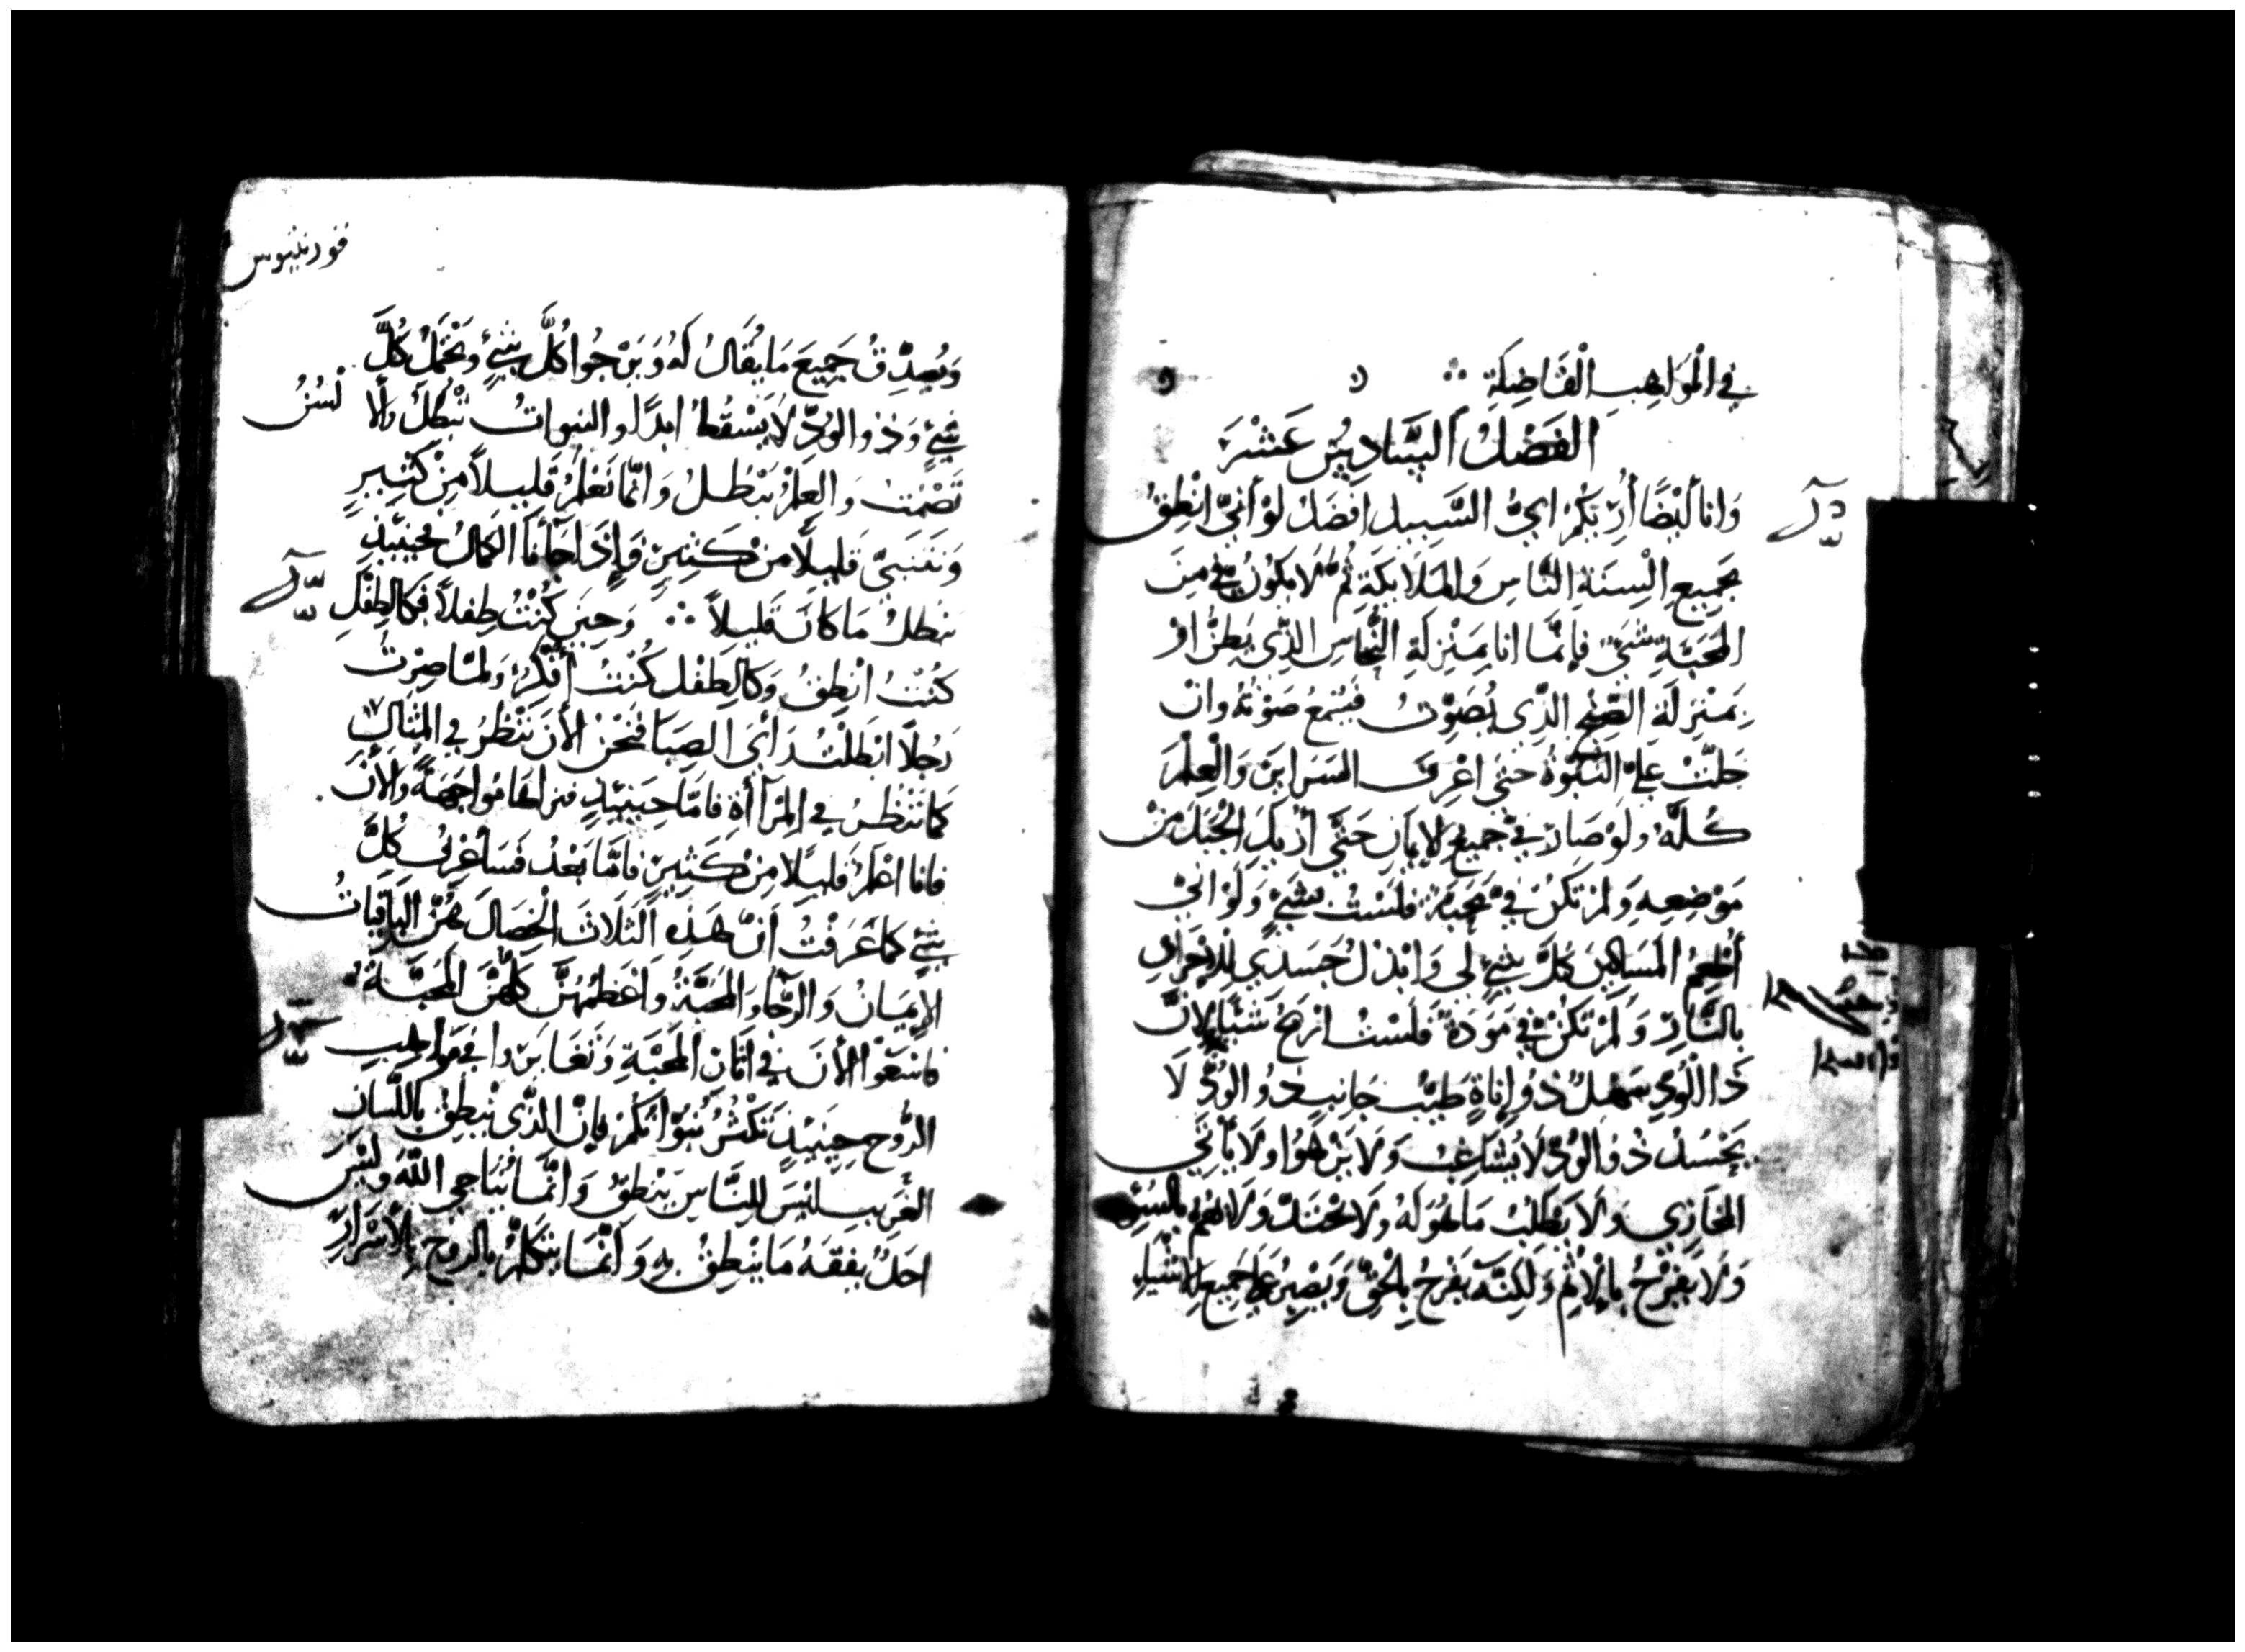 في الْمَوَاهِبِ الْفَاضِلَةِ
الفَصْلُ السَّادِسُ عَشَرَ
وَانا اَيْضًا أُرِيكُمْ ايَّ السَّبِيلِ افْضَلُ لَوْ أَنِّي انْطِقُ
بجَمِيعِ الْسِنَةِ النَّاسِ وَالمَلَايِكَةِ ثُمَّ لَا يَكُونُ فيَّ مِنَ
المَحَبَّةِ شَيْ فَإِنَّمَا انا بِمَنْزِلَةِ النُّحَاسِ الَّذِي يَطِنُّ اوْ
بِمَنْزِلَةِ الصَّنْجِ الَّذِي يُصَوِّتُ فَيُسْمَعُ صَوْتُهُ وان
حَلَّتْ عَلَيَّ النُّبُوَّةُ حَتَّى اعْرِفَ السَرَايِرَ وَالْعِلْمَ
كُلَّهُ ولَوْ صَارَ فيَّ جَمِيعُ الايمَانِ حَتَّى أُزِيلَ الْجَبَلَ مِنْ
مَوْضِعِهِ وَلَمْ تَكُنْ فيَّ مَحَبَّةٌ فَلَسْتُ بشَيْءٍ وَلَوْ انِّي
أُطْعِمُ المَسَاكِينَ كُلَّ شَيْءٍ لي وَابْذُلُ جَسَدِي لِلاِحْرَاقِ
بالنَّارِ وَلَمْ تَكُنْ فيَّ مَوَدَّةٌ فَلَسْتُ ارْبَحُ شَيْئًا لِانَّ
ذَا الْوُدِّ سَهْلٌ ذُو إِنَاةٍ طَيِّبُ جَانِبٍ ذُو الوُدِّ لَا
يَحْسُدُ ذُو الْوُدِّ لَا يُشَاغِبُ وَلَا يَزْهُوا ولَا يَأْتي
المخَازِي وَلَا يَطْلُبُ مَا هُوَ لَهُ ولَا يَحْتَدُّ وَلَا يَهُمُّ بالسُوِّ
وَلَا يَفْرَحُ بالاِثْمِ وَلَكِنَّهُ يَفْرَحُ بِالْحَقِّ وَيَصْبِرُ عَلَى جَمِيعِ الاشْيَاءِ
قورنثيوس
وَيُصَدِّقُ جَمِيعَ مَا يُقَالُ لَهُ وَيَرْجُوا كُلَّ شَيْءٍ وَيَحْتَمِلُ كُلَّ
شَيْءٍ وَذُو الوُدِّ لَا يَسْقُطُ ابَدًا والنبوات تَبْطُلُ والا لْسُنُ
تَصْمُتُ وَالعِلْمُ يَبْطُلُ وَانَّمَا نَعْلَمُ قَلِيلاً مِنْ كَثِيرٍ
وَنَتَنَبَّى قَلِيلًا مِنْ كَثِيرٍ وَإِذَا جَآنَا الكَمَالُ فحِينَيِذٍ
يبْطلُ مَا كَانَ قَلِيلاً ∴ وَحِينَ كُنْتُ طِفلاً فَكَالطِفْلِ
كُنْتُ انْطِقُ وَكَالطِفلِ كُنْتُ أُفَكِّرُ وَلمَّا صِرْتُ
رَجُلًا ابْطَلْتُ رَأْيَ الصِبَا فَنَحْنُ الأنَ نَنْظُرُ في المِثَالِ
كمَا نَنْظُرُ في الْمَرْأَةِ فَامَّا حِينَيِذٍ فنراهَا مُوَاجَهَةً وَالأنَ
فَانا اعْلَمُ قَلِيلًا مِنْ كَثِيرٍ فَامَّا بَعْدُ فَسَأَعْرِفُ كُلَّ
شَيْءٍ كمَا عَرَفْتُ انَّ هَذِهِ الثَلَاثَ الخِصَالَ هُنَّ البَاقِيَاتُ
الإِيمَانُ وَالرَّجَا وَالمَحَبَّةُ وَاعْظَمُهُنَّ كُلِّهُنَّ المَحَبَّةُ
فَاسْعَوْا الأنَ في اثَارِ المَحَبَّةِ وَتَغَايَرُوا في مَوَاهِبِ
الرُّوحِ حِينَيِذٍ تَكْثُرُ نُبُوَّاتُكُمْ فَإِنَّ الَّذِي يَنْطِقُ بِاللِّسَانِ
الغَرِيبِ لَيْسَ لِلنَّاسِ يَنْطِقُ وَانَّمَا يُنَاجِي اللهَ ولَيْسَ
احَدٌ يَفقَهُ مَا يَنْطِقُ بهِ وَانَّمَا يتَكَلَّمُ بالروحِ بِالأَسْرَارِ